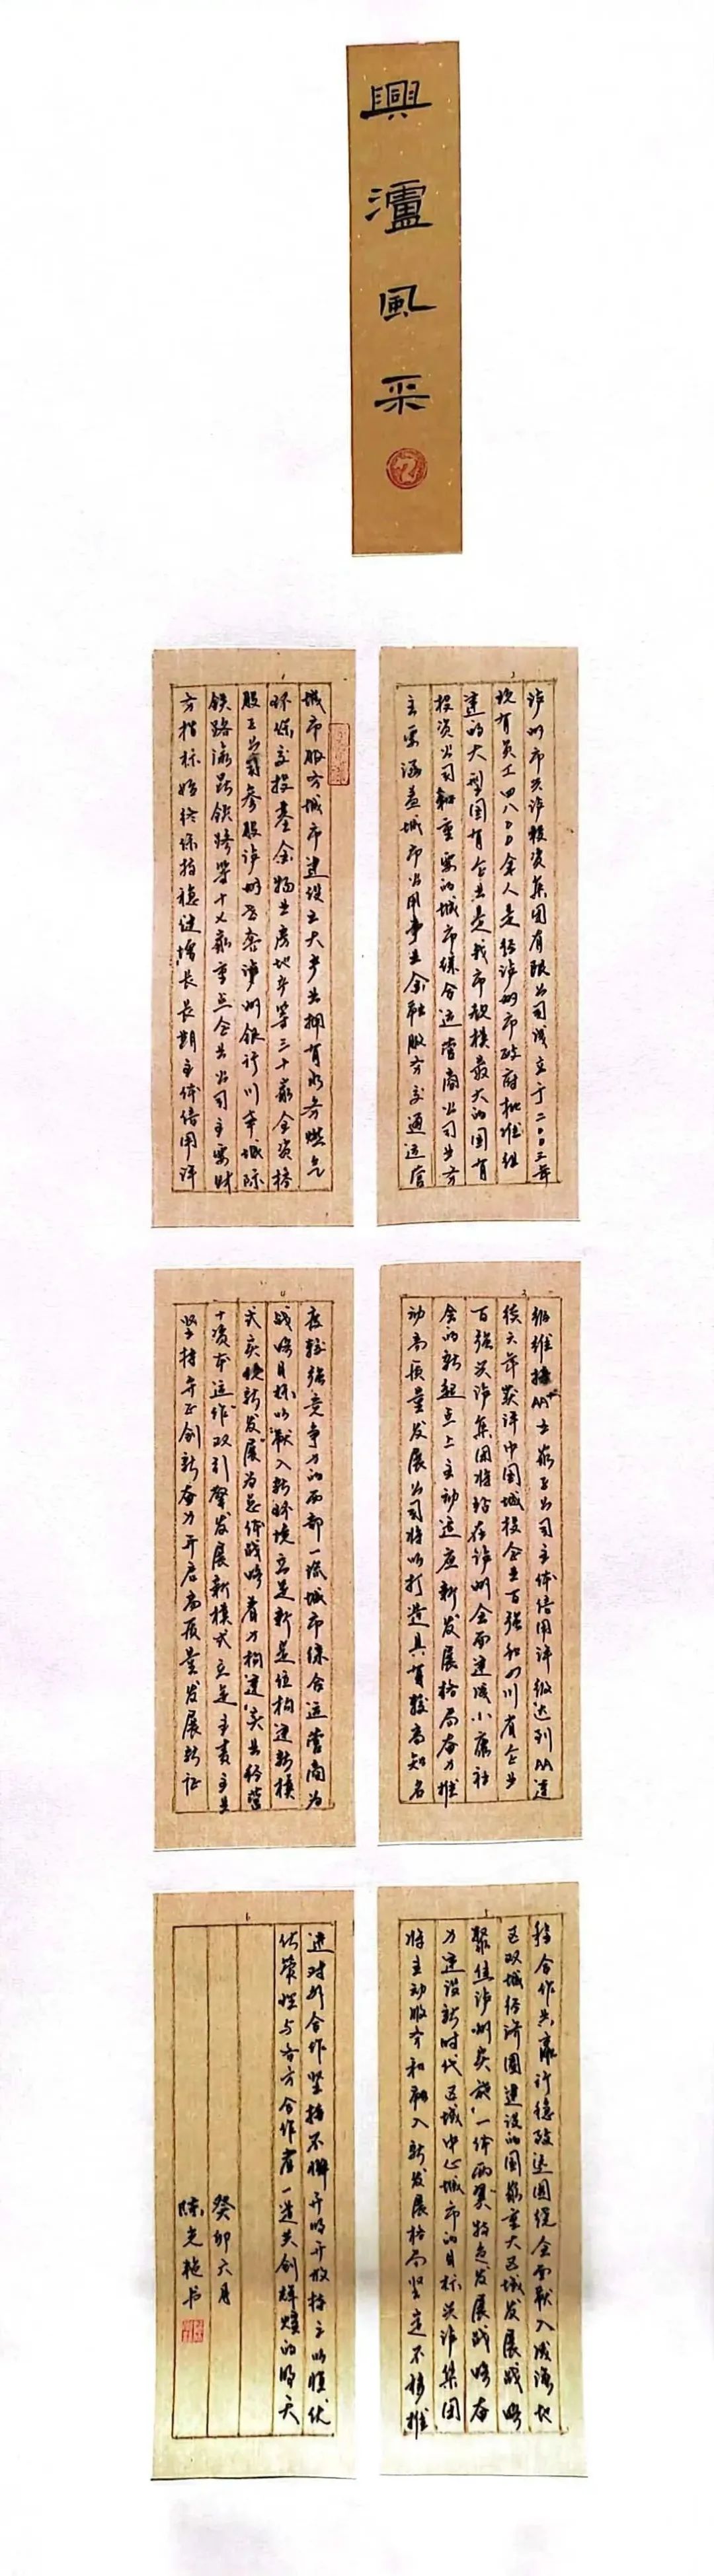 興瀘風采
泸州市兴泸投资集团有限公司成立于二〇〇三年
现有员工四八〇〇余人是经泸州市政府批准组
建的大型国有企业是我市规模最大的国有
投资公司和重要的城市综合运营商公司业务
主要涵盖城市公用事业金融服务交通运营
城市服务城市建设五大产业拥有水务燃气
环保交投基金物业房地产等三十家全资控
股子公司参股泸州老窖泸州银行川南城际
铁路渝昆铁路等十义家重点企业公司主要财
务指标始终保持稳健增长长期主体信用评
级维持AA+五家子公司主体信用评级达到AA连
续六年获评中国城投企业百强和四川省企业
百强兴泸集团将站在泸州全面建成小康社
会的新起点上主动适应新发展格局奋力推
动高质量发展公司将以打造具有较高知名
度较强竞争力的西部一流城市综合运营商为
战略目标以融入新环境立足新定位构建新模
式实现新发展为总体战略着力构建实业经营
+资本运作双引擎发展新模式立足主责主业
坚持守正创新奋力开启高质量发展新征
程合作共赢行稳致远围绕全面融入成渝地
区双城经济圈建设的国家重大区域发展战略
聚焦泸州实施一体两翼特色发展战略奋
力建设新时代区域中心城市的目标兴泸集团
将主动服务和融入新发展格局坚定不移推
进对外合作坚持不懈开明开放持之以恒优
化策性与各方合作者一道共创辉煌的明天
癸卯六月
陈光艳书